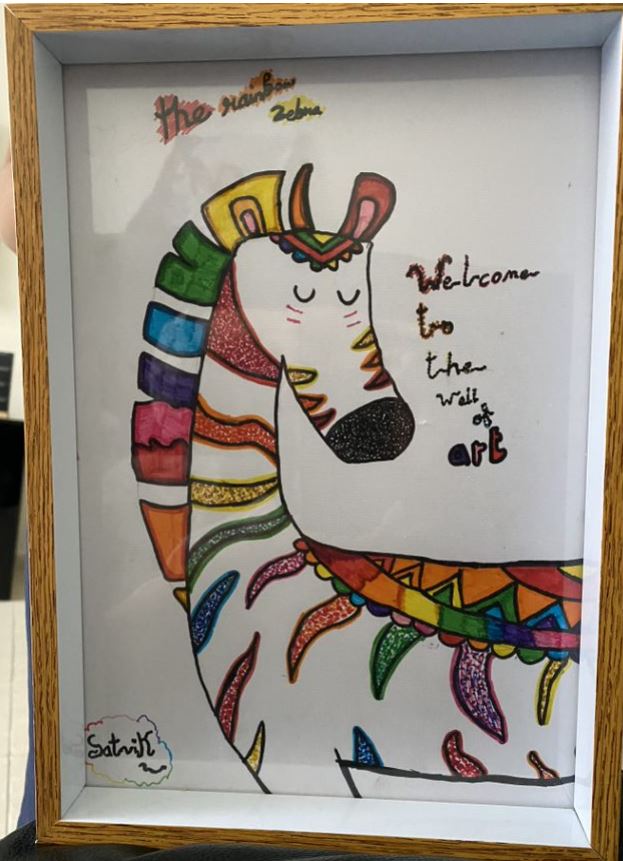 the rainbow
Zebra
Welcome
to
the
Wall
of
art
Satvik